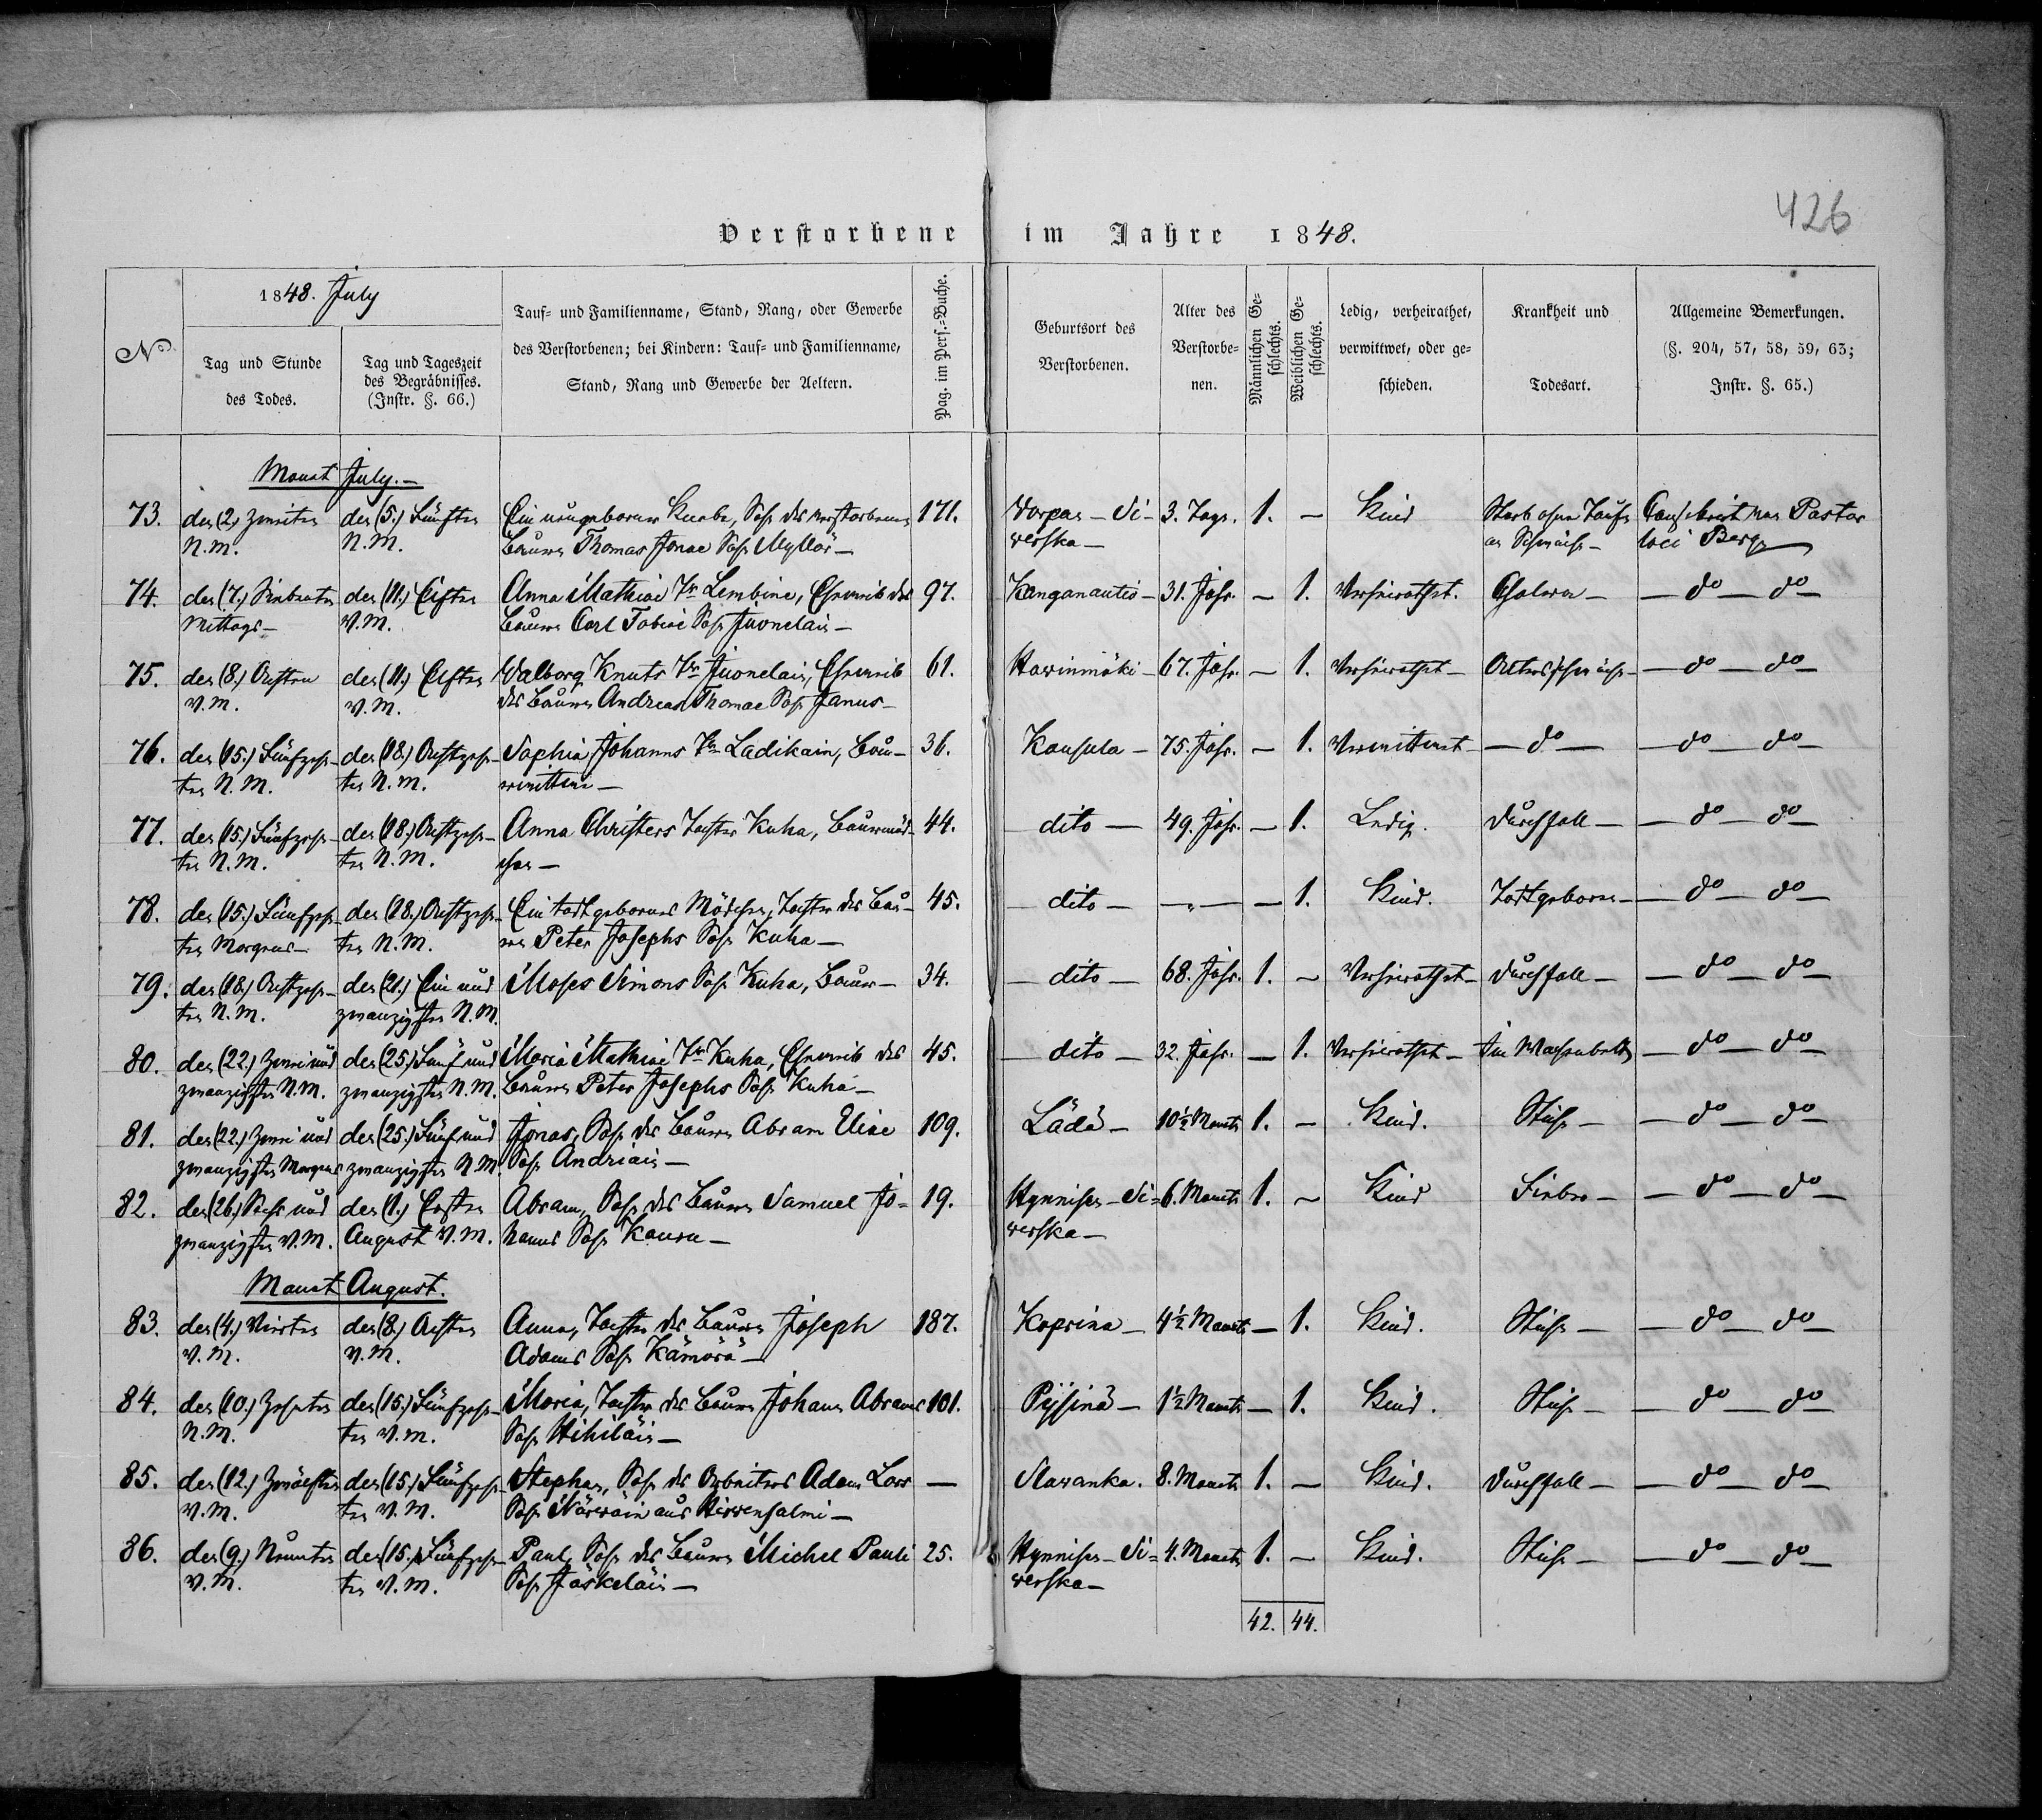 426
Verstorbene im Jahre 1848.
1848. July
No
Tag und Stunde
des Todes.
Tag und Tageszeit
des Begräbnisses.
(Instr. §. 66.)
Tauf- und Familienname, Stand, Rang, oder Gewerbe
des Verstorbenen; bei Kindern: Tauf- und Familienname,
Stand, Rang und Gewerbe der Aeltern.
Pag. im Pers.-Buche.
Geburtsort des
Verstorbenen.
Alter des
Verstorbe-
nen.
Männlichen Ge-
schlechts.
Weiblichen Ge-
schlechts.
Ledig, verheirathet,
verwittwet, oder ge-
schieden.
Krankheit und
Todesart.
Allgemeine Bemerkungen.
(§. 204, 57, 58, 59, 63;
Instr. §. 65.)
Monat July.—
73. den (2.) Zweiten den (5.) Fünften Ein neugeborner Knabe, Sohn des verstorbenen 171. Worpas – Si- 3. Tage. 1. – Kind Starb ohne Taufe Pastor
N.M. N.M. Bauern Thomas Jonae Sohn Myllär— werska— an Schwäche— loci Berg
74. den (7.) Siebenten den (11.) Eilften Anna Mathiae Tr Lembine, Eheweib des 97. Kanganautio— 31. Jahr. – 1. Verheirathet. Cholera— — do — do —
Mittags— V.M. Bauern Carl Tobiae Sohn Juonelain—
75. den (8.) Achten den (11.) Eilften Walborg Knuts Tr Juonelain, Eheweib 61. Hawinmäki— 67. Jahr. – 1. Verheirathet— Altersschwäche— — do — do —
V.M. V.M. des Bauern Andreas Thomae Sohn Janus—
76. den (15.) Fünfzehn- den (18.) Achtzehn- Sophia Johanns Tr Ladikain, Bau- 36. Kausula— 75. Jahr. – 1. Verwittwet— — do — — do — do —
ten N.M. ten N.M. wittwe—
77. den (15.) Fünfzehn- den (18.) Achtzehn- Anna Christers Tochter Kuha, Bauermäd- 44. — dito — 49. Jahr. – 1. Ledig. Durchfall— — do — do —
ten N.M. ten N.M. chen—
78. den (15.) Fünfzehn- den (18.) Achtzehn- Ein todtgebornes Mädchen, Tochter des Bau- 45. — dito — —„— – 1. Kind. Todtgeboren— — do — do —
ten Morgens— ten N.M. ern Peter Josephs Sohn Kuha—
79. den (18.) Achtzehn- den (21.) Ein und Moses Simons Sohn Kuha, Bauer— 34. — dito — 68. Jahr. 1. – Verheirathet— Durchfall— — do — do —
ten N.M. zwanzigsten N.M.
80. den (22.) Zwei und den (25.) Fünf und Maria Mathiae Tr Kuha, Eheweib des 45. — dito — 32. Jahr. – 1. Verheirathet— Im Wochenbette — do — do —
zwanzigsten N.M. zwanzigsten N.M. Bauern Peter Josephs Sohn Kuha—
81. den (22.) Zwei und den (25.) Fünf und Jonas, Sohn des Bauern Abram Eliae 109. Lädä— 10½ Monate 1. – Kind. — do — do —
zwanzigsten Morgens zwanzigsten N.M. Sohn Andriain—
82. den (26.) Sechs und den (1.) Ersten Abram, Sohn des Bauern Samuel Jo- 19. Hynnisen— Si- 6. Monate 1. – Kind Fieber— — do — do —
zwanzigsten V.M. August V.M. hanns Sohn Kauru— werska—
Monat August.
83. den (4.) Vierten den (8.) Achten Anna, Tochter des Bauern Joseph 187. Koprina— 4½ Monate – 1. Kind. — do — do —
V.M. V.M. Adams Sohn Kämärä—
84. den (10.) Zehnten den (15.) Fünfzehn- Maria, Tochter des Bauern Johann Abrams 101. Pysinä— 1½ Monate – 1. Kind. — do — do —
N.M. ten V.M. Sohn Hihiläin—
85. den (12.) Zwölften den (15.) Fünfzehn- Stephan, Sohn des Arbeiters Adam Lars — Slawanka. 8. Monate 1. – Kind. Durchfall— — do — do —
V.M. ten V.M. Sohn Närwäin aus Hirwensalmi—
86. den (9.) Neunten den (15.) Fünfzehn- Paul, Sohn des Bauern Michel Pauli 25. Hynnisen— Si- 4. Monate 1. – Kind. — do — do —
V.M. ten V.M. Sohn Jäskeläin— werska—
42. 44.